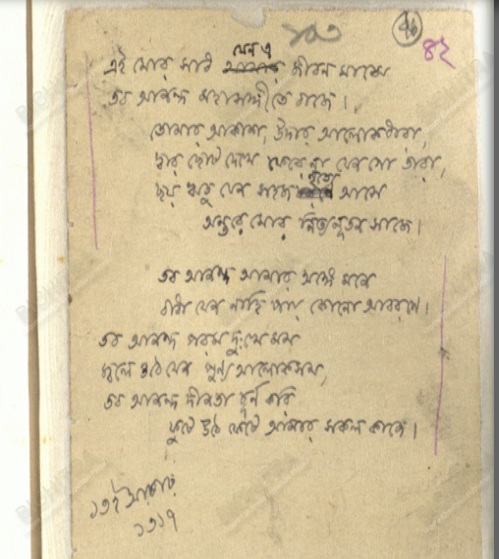 ৪২
এই মোর সাধ যেন এ জীবন মাঝে
তব আনন্দ মহাসঙ্গীতে বাজে।
তোমার আকাশ, উদার আলোকধারা,
দ্বার ছোট দেখে ফেরে না যেন গো তারা,
ছয় ঋতু যেন সহজ নৃত্যে আসে
অন্তরে মোর নিত্য নূতন সাজে।
তব আনন্দ আমার অঙ্গে মনে
বাধা যেন নাহি পায় কোনো আবরণে।
তব আনন্দ পরম দুঃখে মম
জ্বলে উঠে যেন পুণ্য আলোকসম,
তব আনন্দ দীনতা চূর্ণ করি
ফুটে উঠে ফেটে আমার সকল কাজে।
১৩ই আষাঢ়
১৩১৭